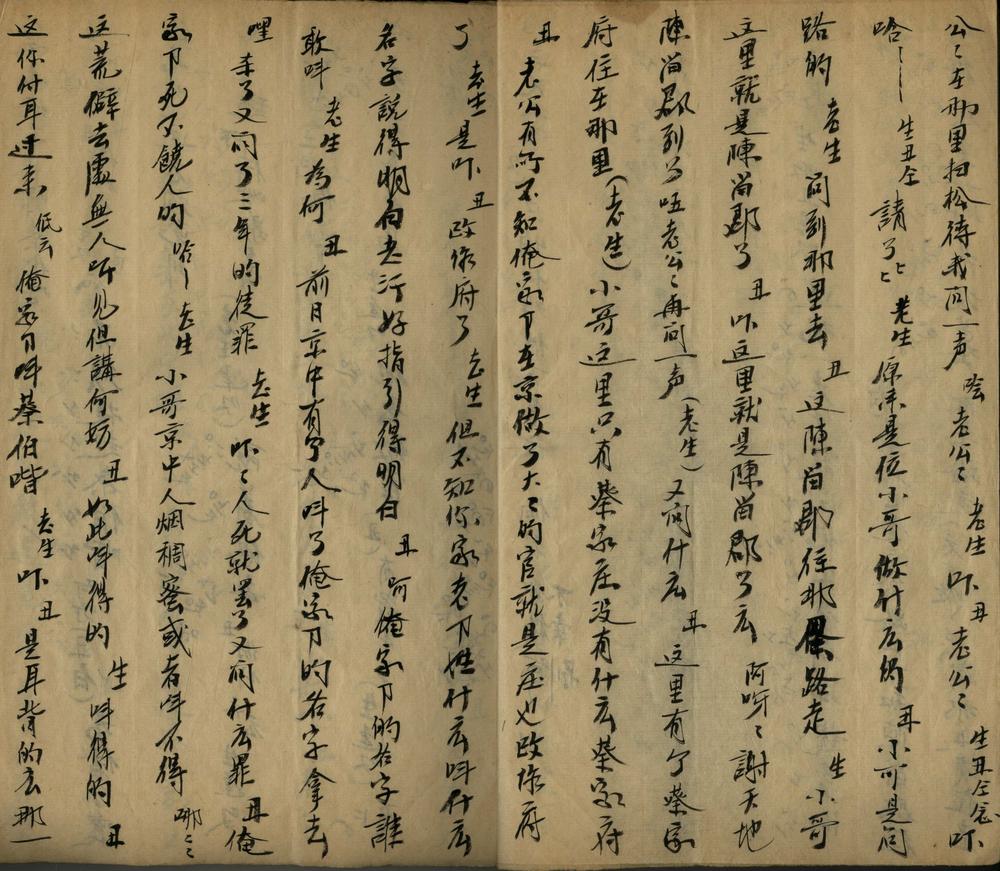 公〻在那里扫松待我问一声 哙老公〻 老生 吓 丑 老公〻 生丑仝念 吓
哈〻 生丑仝 請了〻 老生 原来是位小哥做什么的 丑 小可是问
路的 老生 问到那里去 丑 这陳畄郡往那里路走 生 小哥
这里就是陳畄郡了 丑 吓这里就是陳畄郡了么 阿呀〻謝天地
陳畄郡到了呸老公〻再问一声 (老生) 又问什么 丑 这里有个蔡家
府住在那里 (老生) 小哥这里只有蔡家庄没有什么蔡家府
丑 老公有所不知俺家下在京做了大〻的官就是庄也改作府
了 老生 是吓 丑 改作府了 老生 但不知你家老下姓什么呌什么
名字説得明白老汀好指引得明白 丑 呵俺家下的名字誰
敢呌 老生 为何 丑 前月京中有个人呌了俺家下的名字拿去
哩杀了又问了三年的徒罪 老生 吓〻人死就罢了又问什么罪 丑 俺
家下死不饒人的 哈〻 老生 小哥京中人烟稠蜜或者呌不得 哪〻
这荒僻去處無人听见但講何妨 丑 如此呌得的 生 呌得的 丑
这你付耳过来 低云 俺家下呌蔡伯喈 老生 吓 丑 是耳背的么那一